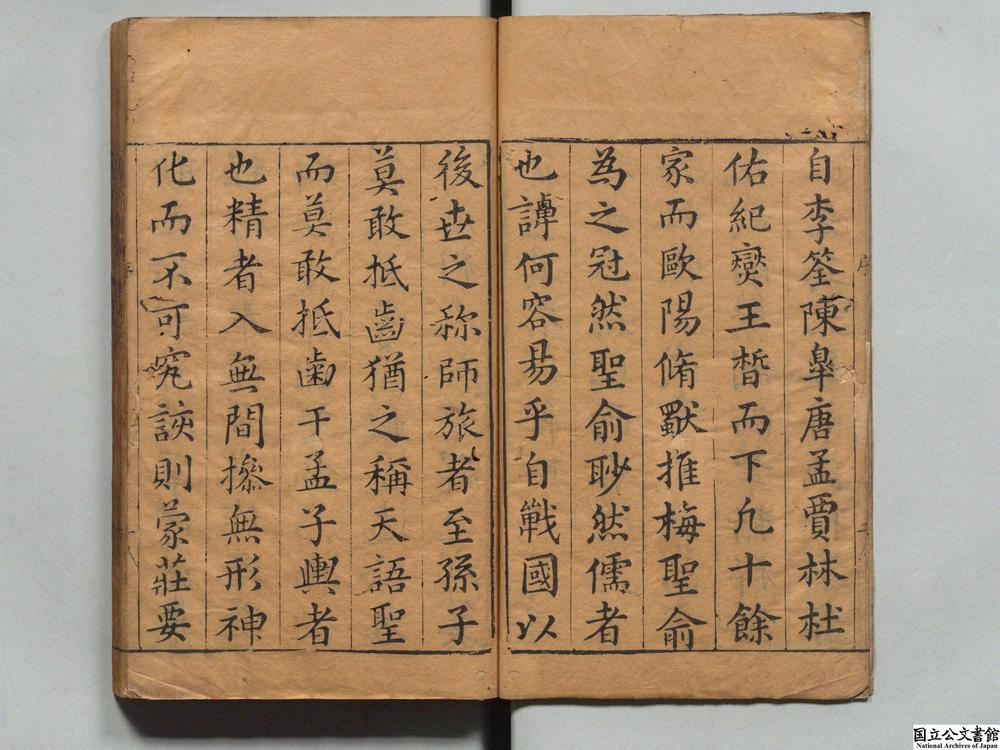 自李筌陳皐唐孟賈林杜
佑紀爕王晳而下凢十餘
家而歐陽脩獸推梅聖俞
為之冠然聖俞眇然儒者
也譚何容易乎自戰國以
後世之称師旅者至孫子
莫敢抵齒猶之稱天語聖
而莫敢抵齒于孟子輿者
也精者入無間摻無形神
化而不可究詼則蒙莊要
序
国立公文書館
National Archives of Japan